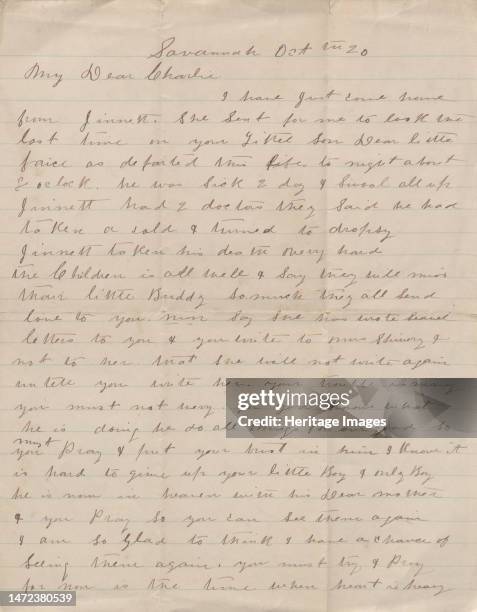 Savannah Oct th 20
My Dear Charlie
I have Just come home
from Jinnett. She Sent for me to look the
last time on your Littel Son Dear little
faice as departed this life to night about
2 oclock. he was Sick 2 day & Swoal all up
Jinnett had 2 doctors they Said he had
taken a cold & turned to dropsy
Jinnett taken his death very hard
the Children is all well & Say they will miss
thair little Buddy So much they all Send
love to you. Say She has wrote
letters to you & you write to &
not to her that She will not write again
untell you write her your
you must not
he is doing he do all So
must
you Pray & put your trust in him I Know it
is hard to give up your little Boy & only Boy
he is now in heaven with his Dear mother
& you Pray So you can See them again
I am So Glad to think I have a chance of
Seeing them again. you must try & Pray
for now is the time when heart is heavy
gettyimages
Credit: Heritage Images
1472380539